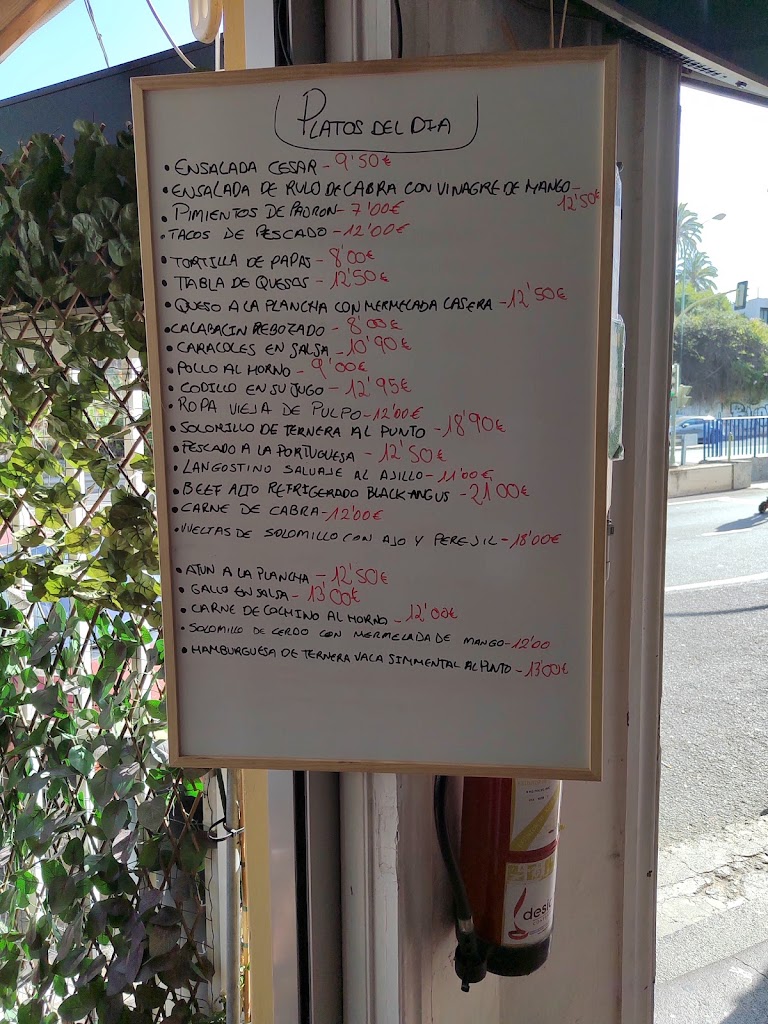 PLATOS DEL DIA
• ENSALADA CESAR - 9'50€
• ENSALADA DE RULO DE CABRA CON VINAGRE DE MANGO -
12'50€
• PIMIENTOS DE PADRON - 7'00€
• TACOS DE PESCADO - 12'00€
• TORTILLA DE PAPAS - 8'00€
• TABLA DE QUESOS - 12'50€
• QUESO A LA PLANCHA CON MERMELADA CASERA - 12'50€
• CALABACIN REBOZADO - 8'00€
• CARACOLES EN SALSA - 10'90€
• POLLO AL HORNO - 9'00€
• CODILLO EN SU JUGO - 12'95€
• ROPA VIEJA DE PULPO - 12'00€
• SOLOMILLO DE TERNERA AL PUNTO - 18'90€
• PESCADO A LA PORTUGUESA - 12'50€
• LANGOSTINO SALVAJE AL AJILLO - 11'00€
• BEEF ALTO REFRIGERADO BLACK-ANGUS - 21'00€
• CARNE DE CABRA - 12'00€
• VUELTAS DE SOLOMILLO CON AJO Y PEREJIL - 18'00€
• ATUN A LA PLANCHA - 12'50€
• GALLO EN SALSA - 13'00€
• CARNE DE COCHINO AL HORNO - 12'00€
• SOLOMILLO DE CERDO CON MERMELADA DE MANGO - 12'00
• HAMBURGUESA DE TERNERA VACA SIMMENTAL AL PUNTO - 13'00€